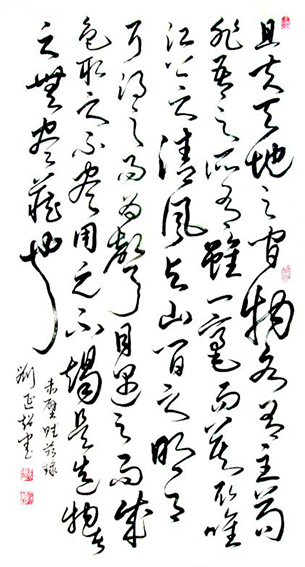 且夫天地之間物各有主苟
非吾之所有雖一毫而莫取唯
江上之清風与山間之明月
耳得之而為聲目遇之而成
色取之不盡用之不竭是造物者
之無盡藏也
赤壁賦節錄
劉書